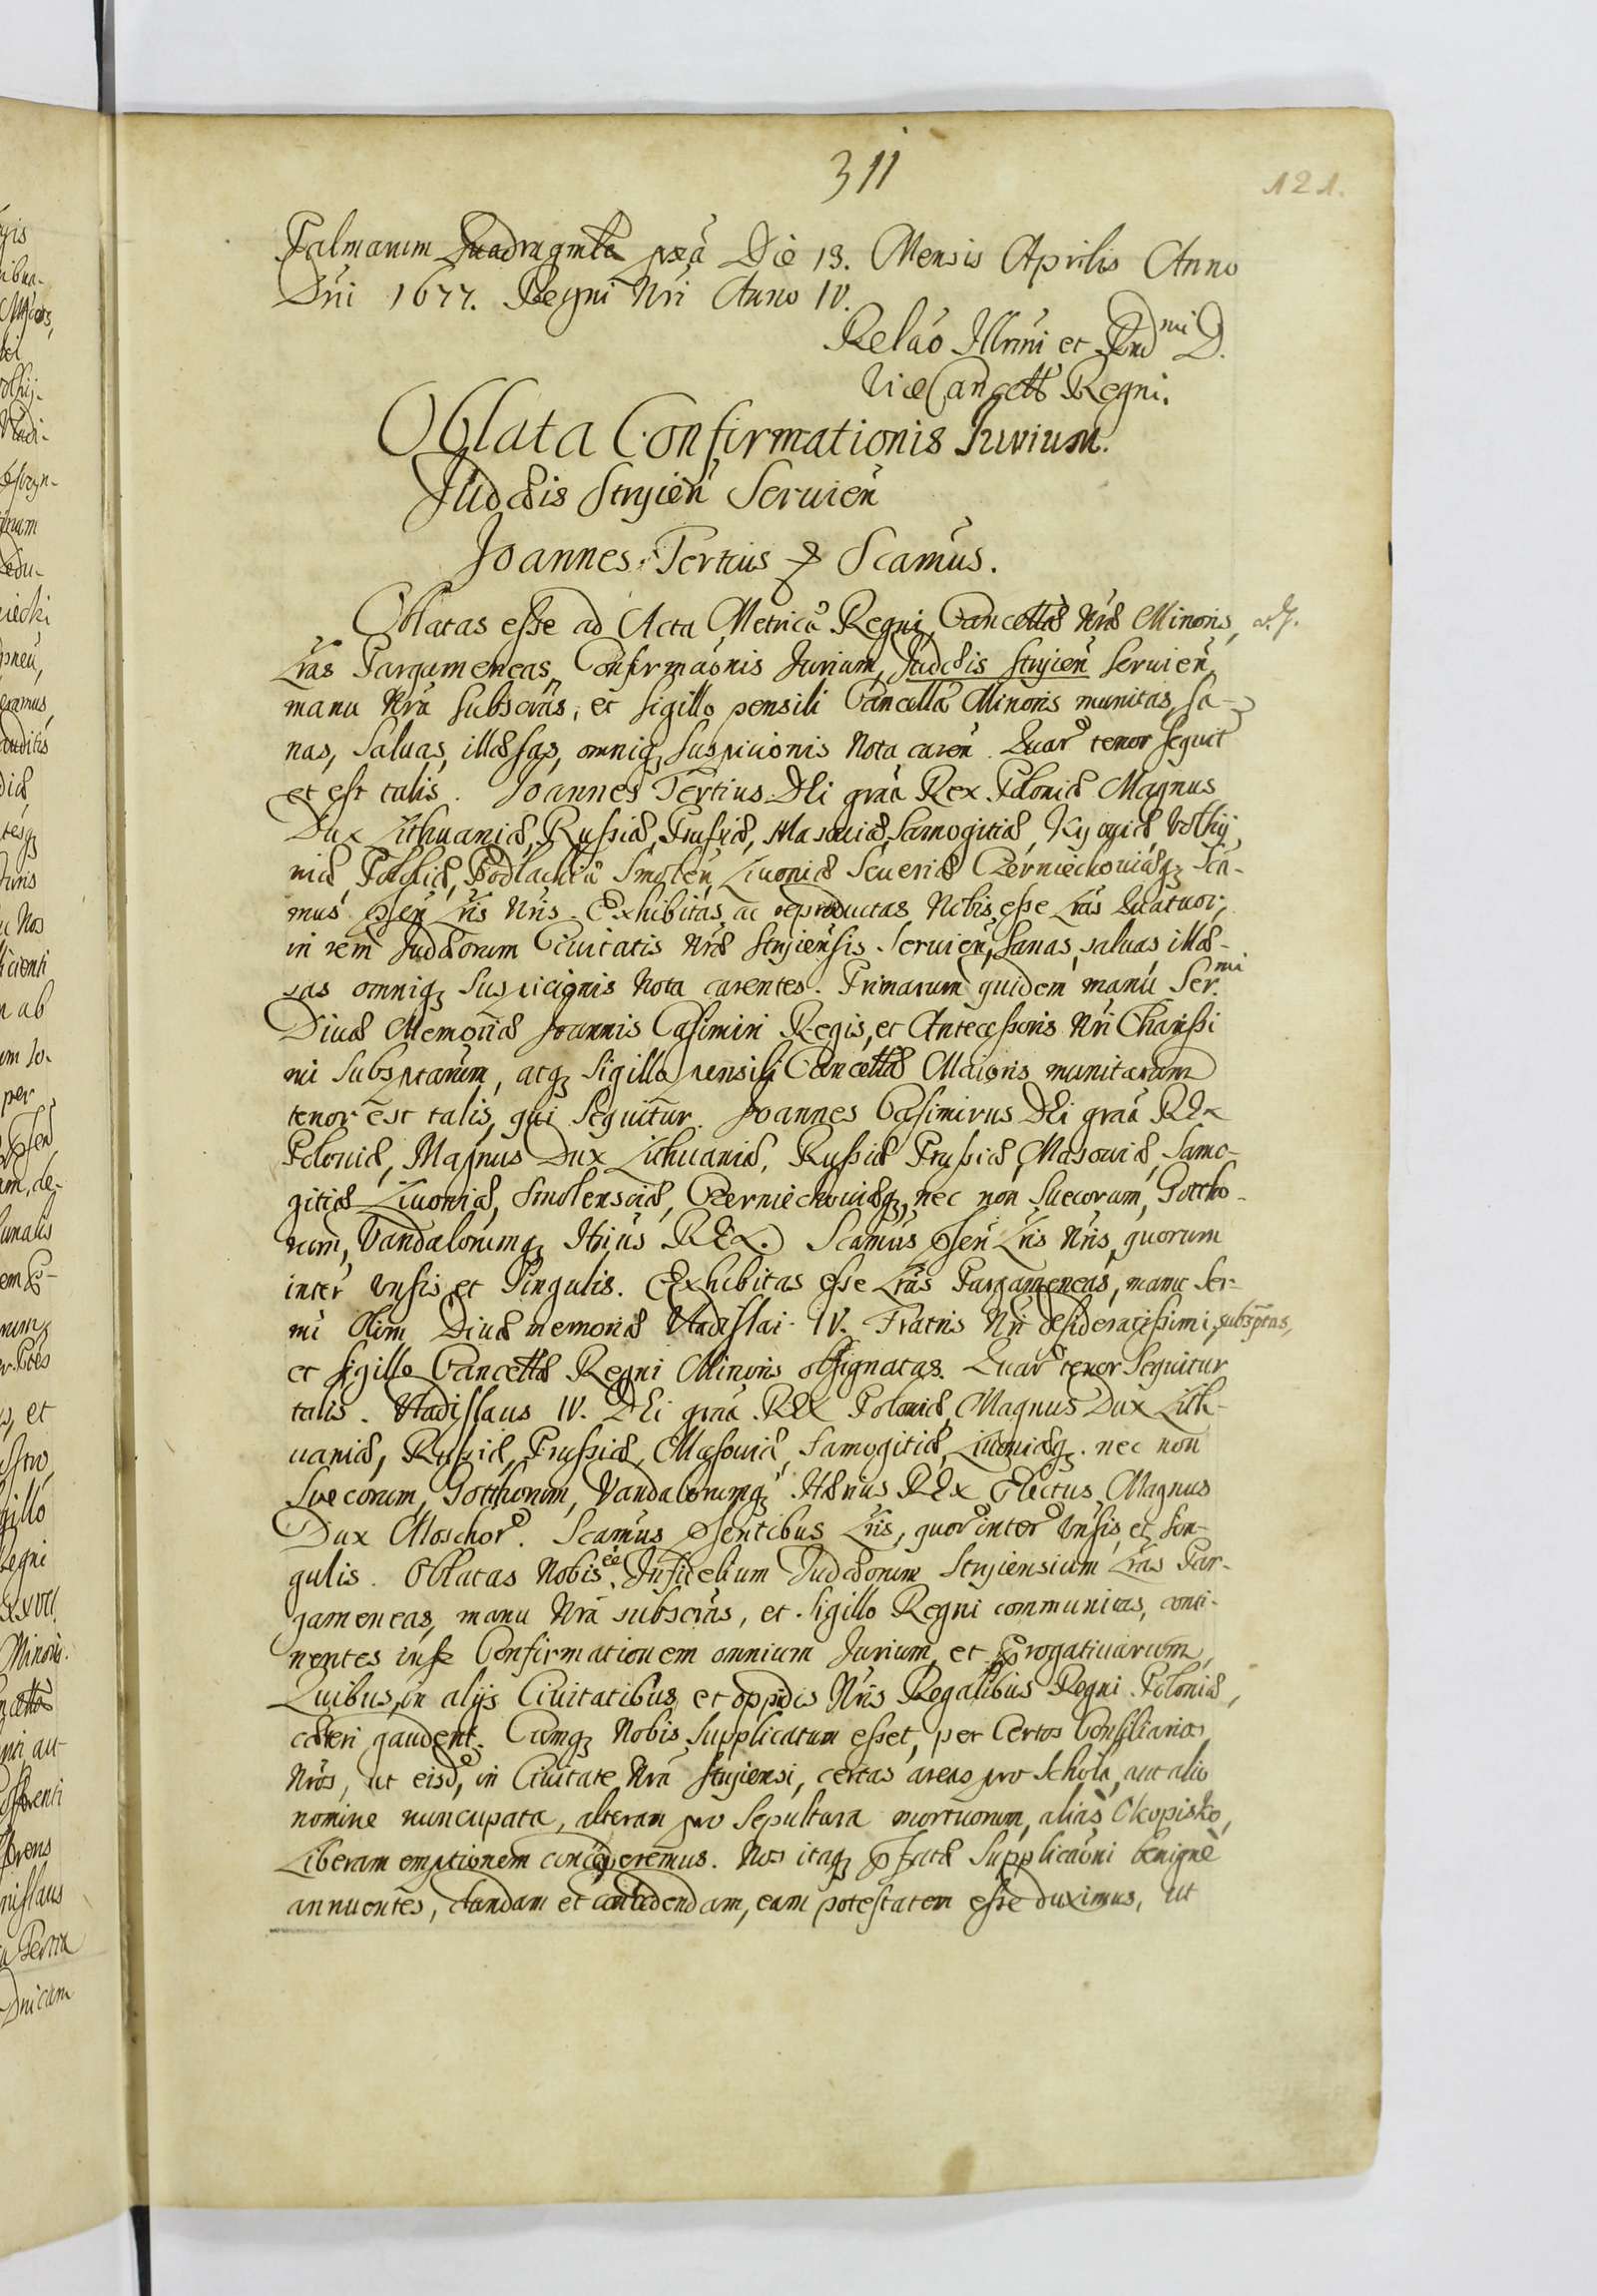 311
121.
Palmarum Quadragmta pxa Die 13. Mensis Aprilis Anno
Dni 1677. Regni Nri Anno IV.
Relao Illmi et Rnd mi D.
ViceCancell Regni.
Oblata Confirmationis Jurium.
Judæis Stryien Seruien
Joannes Tertius & Scamus.
Oblatas esse ad Acta Metrica Regni Cancellæ Nræ Minoris,
Lras Pargameneas, Confirmaonis Jurium, Judæis Stryien Seruien,
manu Nra Subscras, et Sigillo pensili Cancella Minoris munitas, Sa-
nas, Saluas, illæsas, omniq Suspicionis Nota caren. Quar tenor Sequit
et est talis. Joannes Tertius Dei graa Rex Poloniæ Magnus
Dux Lithuaniæ, Russiæ, Prussiæ, Masouiæ, Samogitiæ, Kyouiæ, Volhy
niæ, Podoliæ, Podlachia Smolen, Liuoniæ Seueriæ Czerniechouiæq Sca-
mus psen Lris Nris. Exhibitas ac reproductas Nobis esse Lras Quatuor,
in rem Judæorum Ciuitatis Nræ Stryiensis Seruien, Sanas, saluas, illæ-
sas omniq Suspicionis Nota carentes. Primarum quidem manu Ser. mi
Diuæ Memoriæ Joannis Casimiri Regis, et Antecessoris Nri Charissi
mi Subsptarum, atq Sigillo pensili Cancellæ Maioris munitarum
tenor est talis, qui Sequitur. Joannes Casimirus Dei graa REx
Poloniæ, Magnus Dux Lithuaniæ, Russiæ Prussiæ, Masouiæ, Samo-
gitiæ Liuoniæ, Smolensciæ, Czerniechouiæq, nec non Suecorum, Gottho-
rum, Vandalorumq Htrius REx. Scamus psen Lris Nris, quorum
inter vnsis et Singulis. Exhibitas esse Lras Pargameneas, manu Ser-
mi Olim Diuæ memoriæ Vladislai IV. Fratris Nri desideratissimi subsptas,
et Sigillo Cancellæ Regni Minoris obsignatas. Quar tenor Sequitur
talis. Vladislaus IV. DEi graa REX Poloniæ, Magnus Dux Lith-
uaniæ, Russiæ, Prussiæ, Masouiæ, Samogitiæ, Liuoniæq. nec non
Suecorum, Gotthorum, Vandalorumq Hærius REx Electus Magnus
Dux Moschor. Scamus psentibus Lris, quor inter Vnsis, et Sin-
gulis. Oblatas Nobis ee Infidelium Judæorum Stryiensium Lras Par-
gameneas, manu Nra subscras, et Sigillo Regni communitas, conti-
nentes inse Confirmationem omnium Jurium, et Progatiuarum,
Quibus, in alijs Ciuitatibus et oppidis Nris Regalibus Regni Poloniæ,
cæteri gaudent. Cumq Nobis Supplicatum esset, per Certos Consiliarios
Nros, ut eisd, in Ciuitate Nra Stryiensi, certas areas pro Schola, aut alio
nomine nuncupata, alteram pro Sepultura mortuorum, alias Okopisko,
Liberam emptionem concederemus. Nos itaq pfatæ Supplicaoni benigne
annuentes, dandam et concedendam, eam potestatem esse duximus, ut